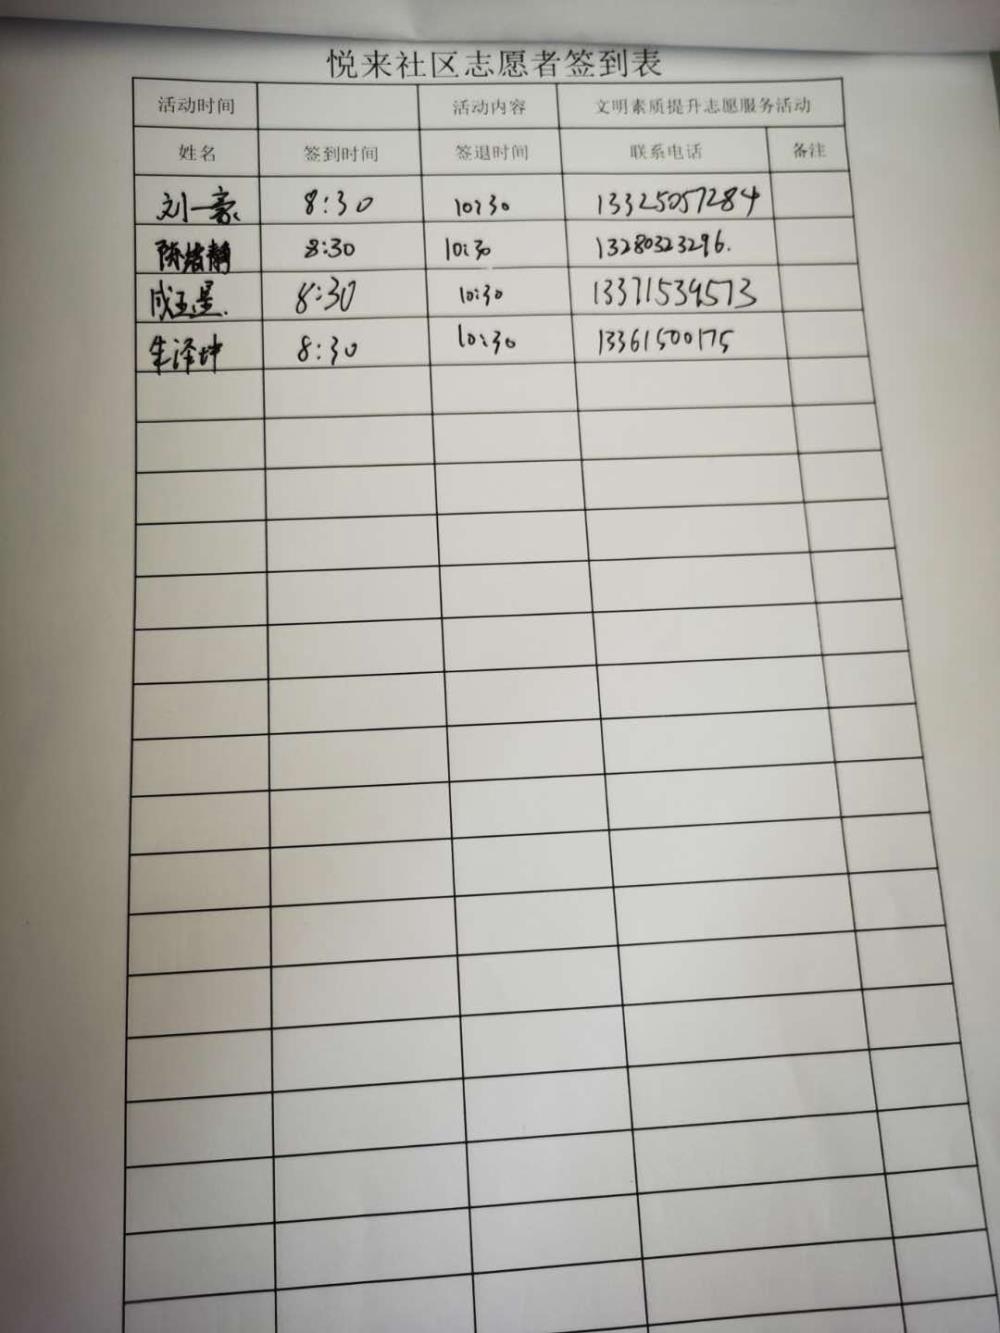 悦来社区志愿者签到表
活动时间 活动内容 文明素质提升志愿服务活动
姓名 签到时间 签退时间 联系电话 备注
刘一豪 8:30 10:30 13325057284
8:30 10:30 13280323296.
成玉星. 8:30 10:30 13371534573
朱泽坤 8:30 10:30 13361500175